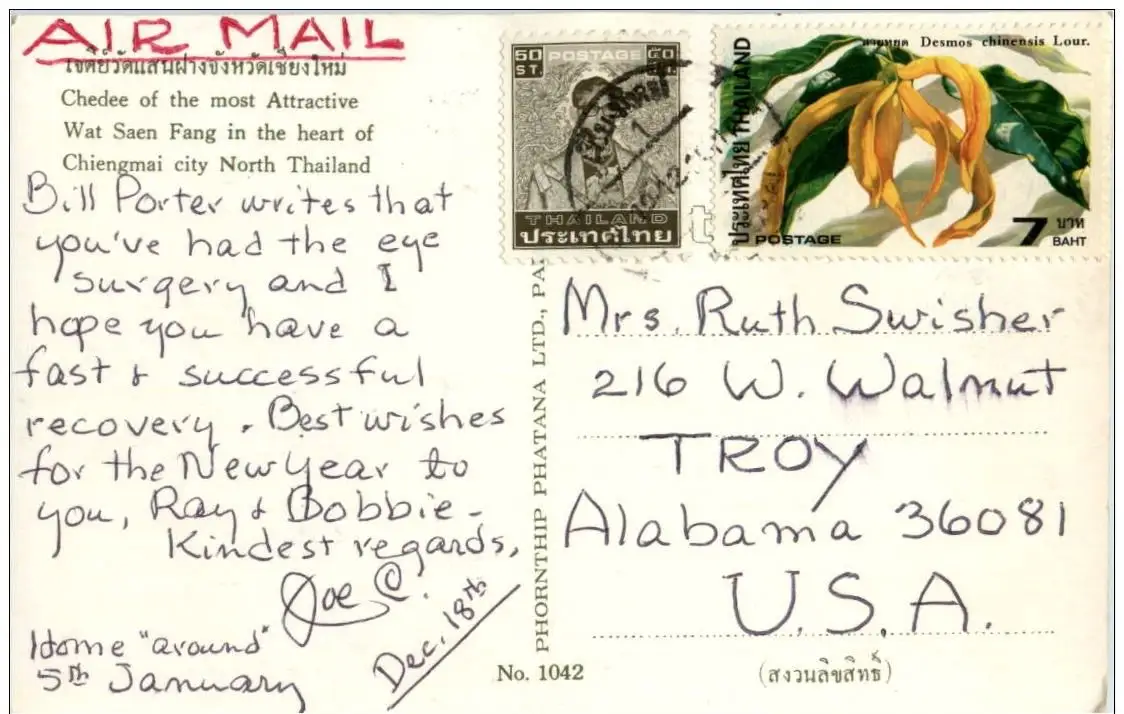 AIR MAIL
เจดีย์วัดแสนฝางจังหวัดเชียงใหม่
Chedee of the most Attractive
Wat Saen Fang in the heart of
Chiengmai city North Thailand
Bill Porter writes that
you've had the eye
surgery and I
hope you have a
fast & successful
recovery. Best wishes
for the New Year to
you, Ray & Bobbie -
Kindest regards,
Joe C.
Dec. 18th
Home "around"
5th January
50 ST.
POSTAGE
THAILAND
ประเทศไทย
สายหยุด Desmos chinensis Lour.
ประเทศไทย THAILAND
POSTAGE
7 บาท
BAHT
PHORNTHIP PHATANA LTD.,
Mrs. Ruth Swisher
216 W. Walnut
TROY
Alabama 36081
U.S.A.
No. 1042
(สงวนลิขสิทธิ์)